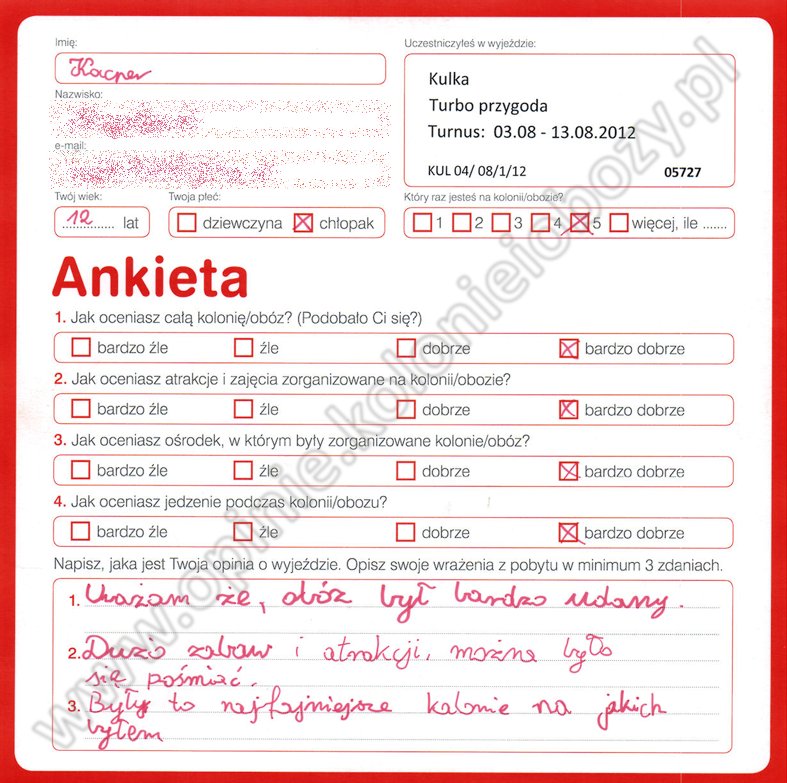 Imię:
Uczestniczyłeś w wyjeździe:
Kacper
Kulka
Nazwisko:
Turbo przygoda
Turnus: 03.08 - 13.08.2012
e-mail:
KUL 04/ 08/1/12 05727
Twój wiek: Twoja płeć: Który raz jesteś na kolonii/obozie?
12 lat dziewczyna chłopak 1 2 3 4 5 więcej, ile .......
Ankieta
1. Jak oceniasz całą kolonię/obóz? (Podobało Ci się?)
bardzo źle źle dobrze bardzo dobrze
2. Jak oceniasz atrakcje i zajęcia zorganizowane na kolonii/obozie?
bardzo źle źle dobrze bardzo dobrze
3. Jak oceniasz ośrodek, w którym były zorganizowane kolonie/obóz?
bardzo źle źle dobrze bardzo dobrze
4. Jak oceniasz jedzenie podczas kolonii/obozu?
bardzo źle źle dobrze bardzo dobrze
Napisz, jaka jest Twoja opinia o wyjeździe. Opisz swoje wrażenia z pobytu w minimum 3 zdaniach.
1. Uważam że, obóz był bardzo udany.
2. Dużo zabaw i atrakcji, można było
się pośmiać.
3. Były to najfajniejsze kolonie na jakich
byłem
www.opinie.kolonieiobozy.pl